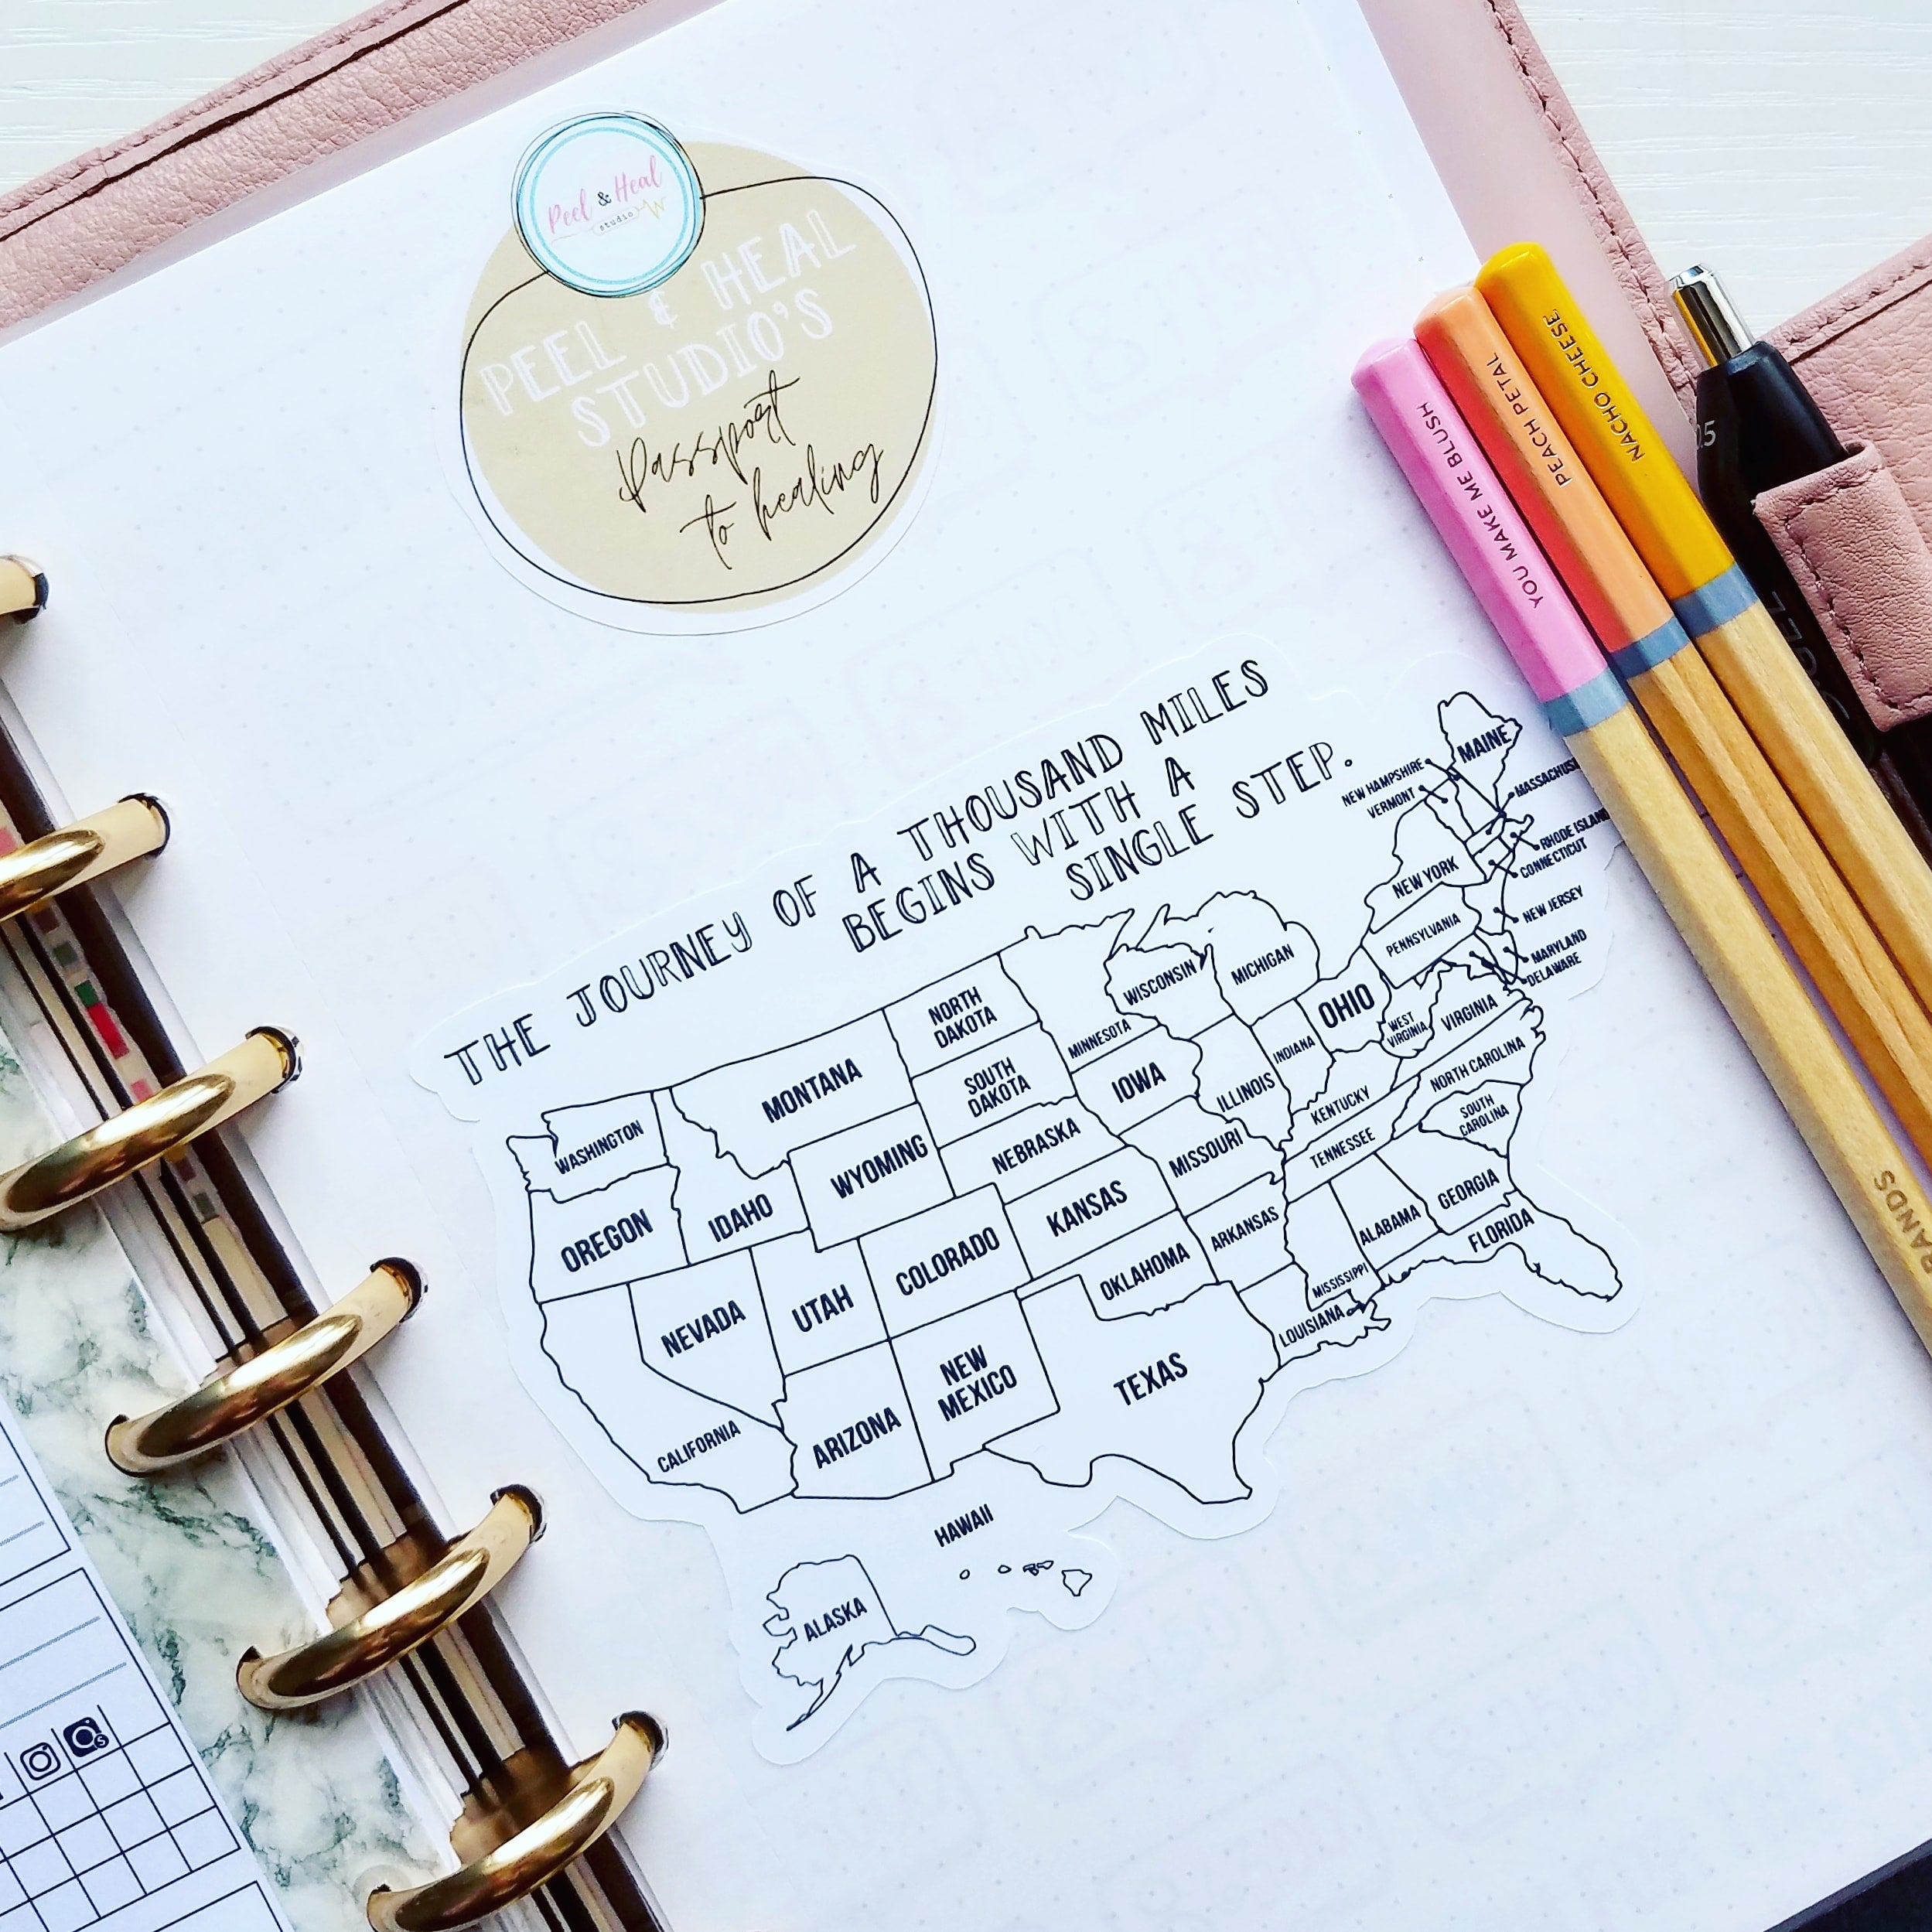 Peel & Heal
studio
PEEL & HEAL
STUDIO'S
Passport
to healing
YOU MAKE ME BLUSH
PEACH PETAL
NACHO CHEESE
0.5
THE JOURNEY OF A THOUSAND MILES
BEGINS WITH A
SINGLE STEP.
MAINE
NEW HAMPSHIRE
VERMONT
RHODE ISLAND
CONNECTICUT
NEW YORK
NEW JERSEY
PENNSYLVANIA
MARYLAND
DELAWARE
WISCONSIN
MICHIGAN
OHIO
WEST
VIRGINIA
VIRGINIA
NORTH
DAKOTA
MINNESOTA
INDIANA
MONTANA
SOUTH
DAKOTA
IOWA
ILLINOIS
KENTUCKY
NORTH CAROLINA
SOUTH
CAROLINA
WASHINGTON
WYOMING
NEBRASKA
MISSOURI
TENNESSEE
OREGON
IDAHO
COLORADO
KANSAS
ARKANSAS
ALABAMA
GEORGIA
FLORIDA
NEVADA
UTAH
OKLAHOMA
MISSISSIPPI
LOUISIANA
CALIFORNIA
ARIZONA
NEW
MEXICO
TEXAS
HAWAII
ALASKA